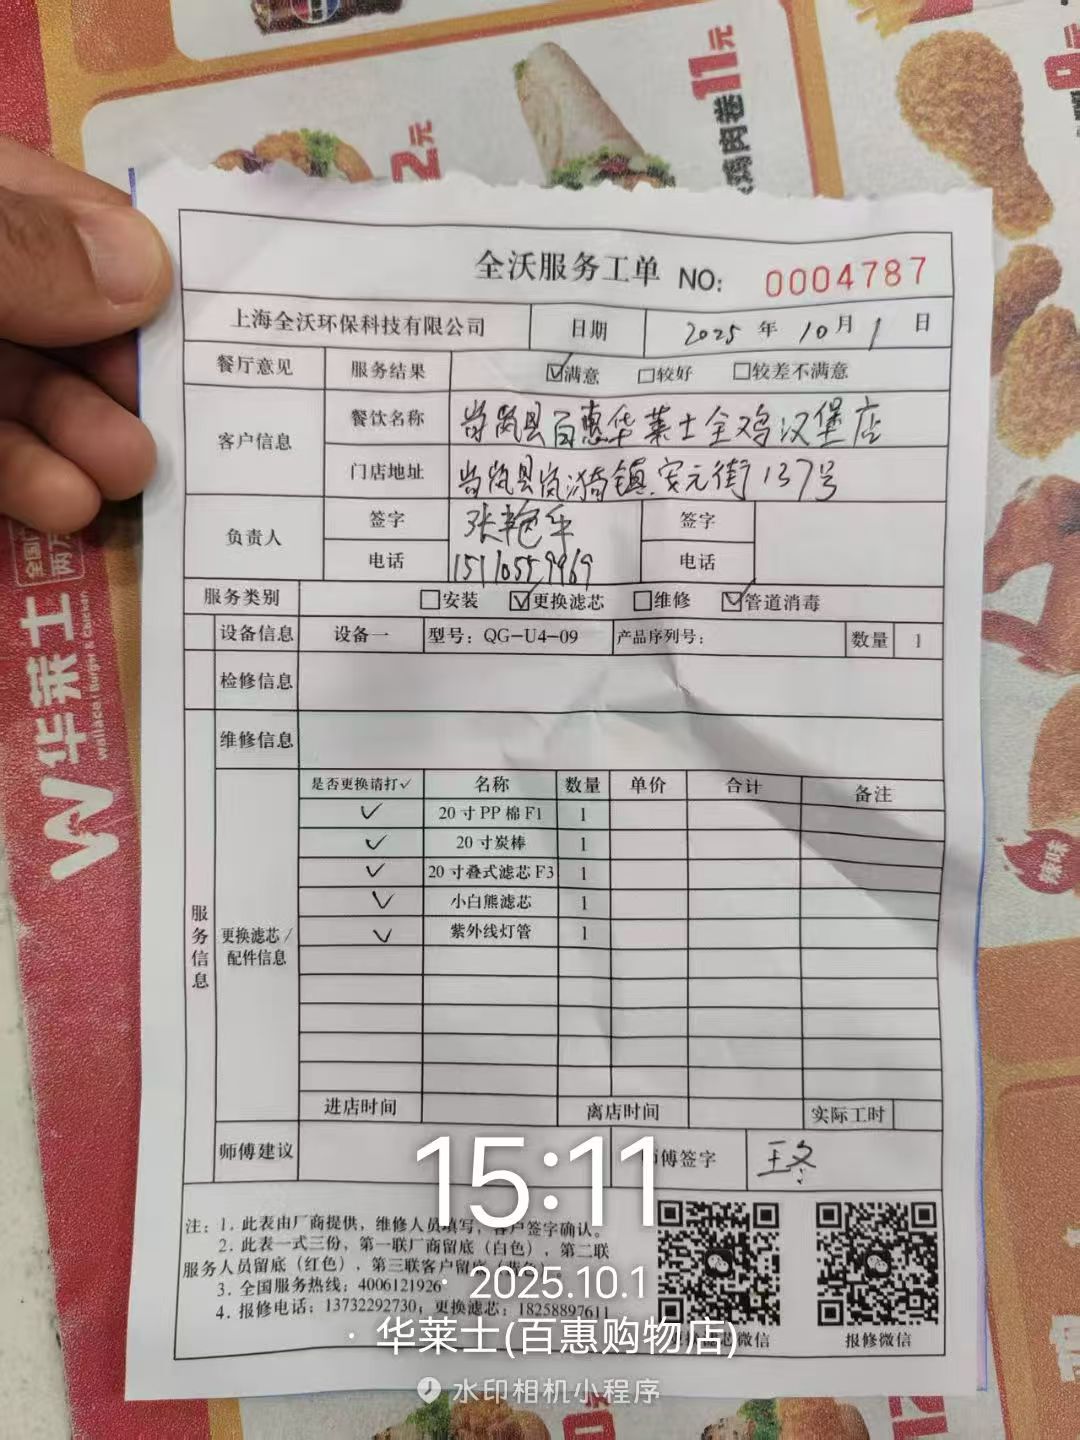 2元
鸡肉卷11元
全沃服务工单 NO: 0004787
上海全沃环保科技有限公司 日期 2025 年 10 月 1 日
餐厅意见 服务结果 ☑满意 □较好 □较差不满意
客户信息 餐饮名称 岢岚县百惠华莱士全鸡汉堡店
门店地址 岢岚县岚漪镇安元街137号
负责人 签字 张艳平 签字
电话 电话
服务类别 □安装 ☑更换滤芯 □维修 ☑管道消毒
设备信息 设备一 型号：QG-U4-09 产品序列号： 数量 1
检修信息
维修信息
服务信息
更换滤芯/
配件信息
是否更换请打✓ 名称 数量 单价 合计 备注
✓ 20寸PP棉F1 1
✓ 20寸炭棒 1
✓ 20寸叠式滤芯F3 1
✓ 小白熊滤芯 1
✓ 紫外线灯管 1
进店时间 离店时间 实际工时
师傅建议 师傅签字 王冬
注：1. 此表由厂商提供，维修人员填写，客户签字确认。
2. 此表一式三份，第一联厂商留底（白色），第二联
服务人员留底（红色），第三联客户留底
3. 全国服务热线：4006121926
4. 报修电话：13732292730；更换滤芯：18258897611
微信 报修微信
15:11
· 2025.10.1
· 华莱士(百惠购物店)
水印相机小程序
华莱士
Wallace
辣味